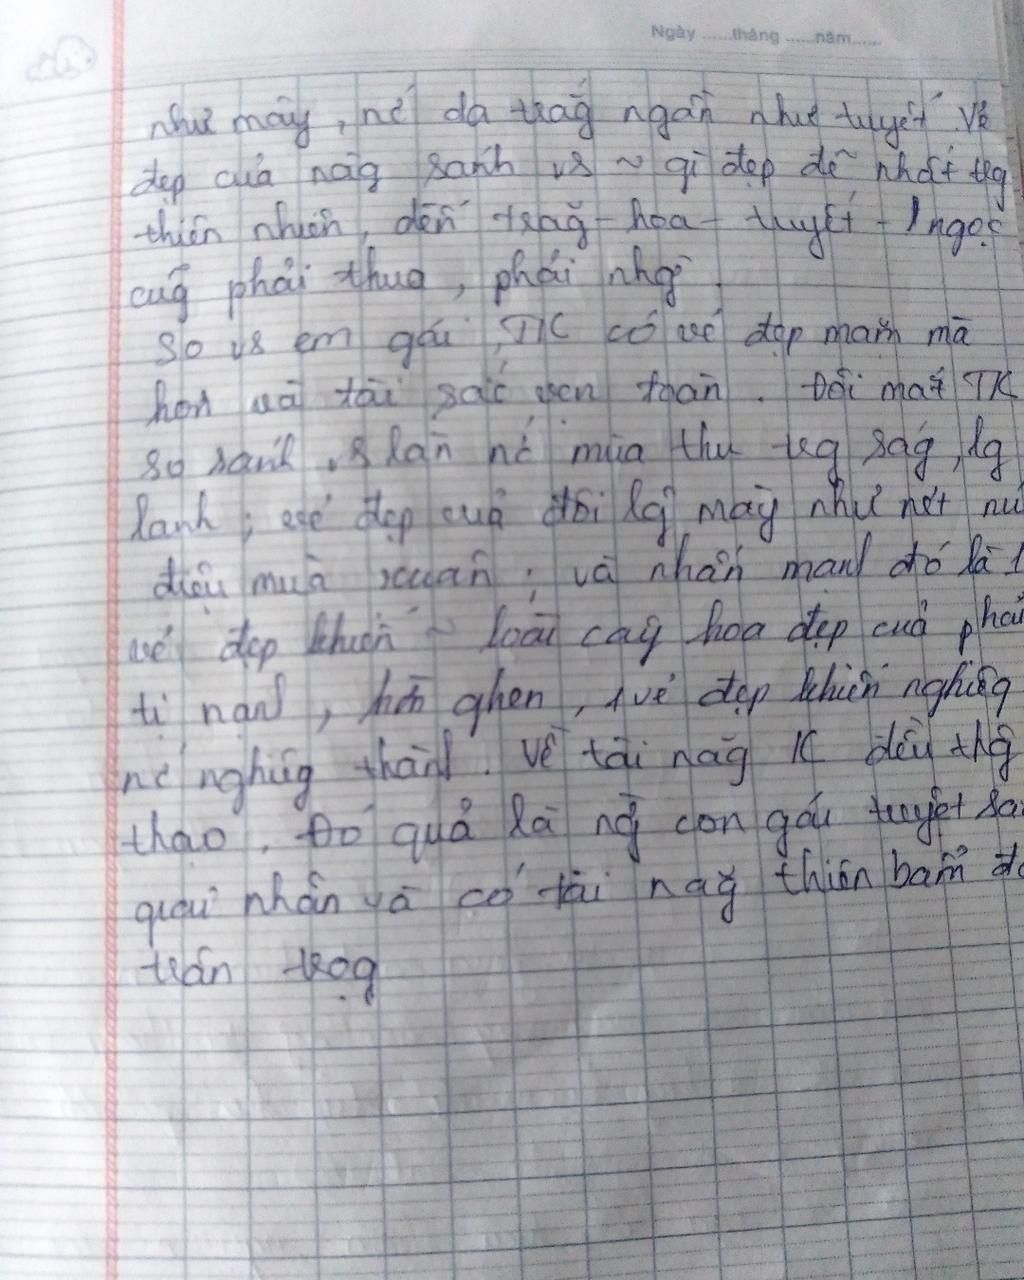 Ngày ......tháng ......năm......
như mây, nc da trắg ngần như tuyết. Vẻ
đẹp của nàg sánh vs ~ gì đẹp đẽ nhất trg
thiên nhiên, đến trăg - hoa - tuyết - ngọc
cũg phải thua, phải nhg
So vs em gái, TK có vẻ đẹp mặn mà
hơn và tài sắc vẹn toàn. Đôi mắt TK
so sánh vs làn nc mùa thu trg ság, lg
lanh; vẻ đẹp của đôi lg mày như nét nú
điệu mùa xuân; và nhấn mạnh đó là 1
vẻ đẹp khiến ~ loài cây hoa đẹp của phải
tị nạnh, hờn ghen, 1 vẻ đẹp khiến nghiêg
nc nghiêg thành. Về tài năg K đều thg
thạo. Đó quả là ng con gái tuyệt sa
giai nhân và có tài năg thiên bẩm đá
trân trọg